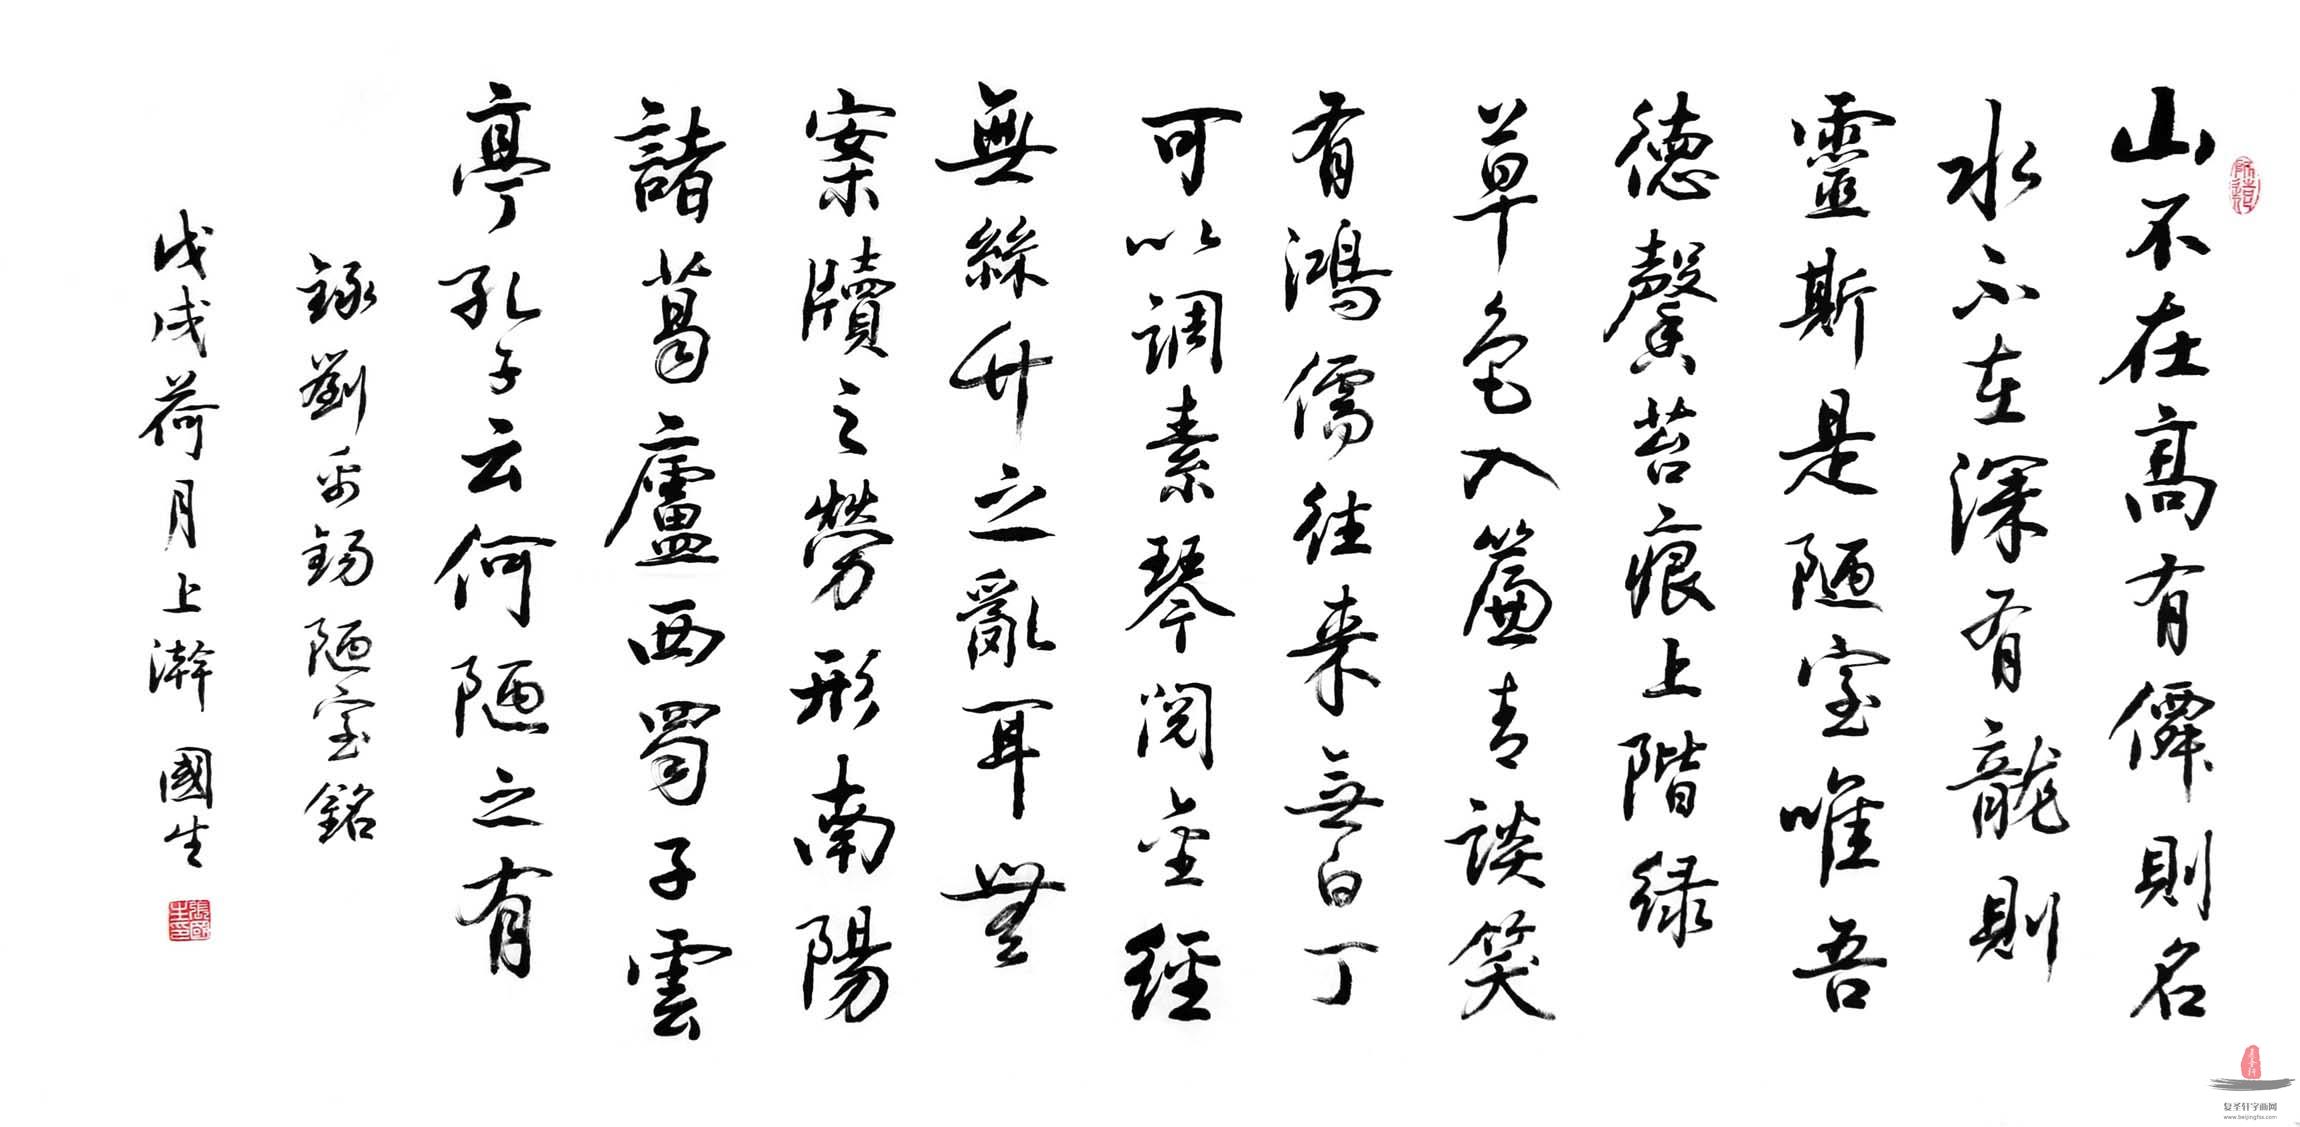 山不在高有僊則名
水不在深有龍則
靈斯是陋室唯吾
德馨苔痕上階緑
草色入簾青談笑
有鴻儒往来無白丁
可以調素琴閱金經
無絲竹之亂耳無
案牘之勞形南陽
諸葛廬西蜀子雲
亭孔子云何陋之有
錄劉禹錫陋室銘
戊戌荷月上澣 國生
張國生印
复圣轩字画网
www.beijingfsx.com